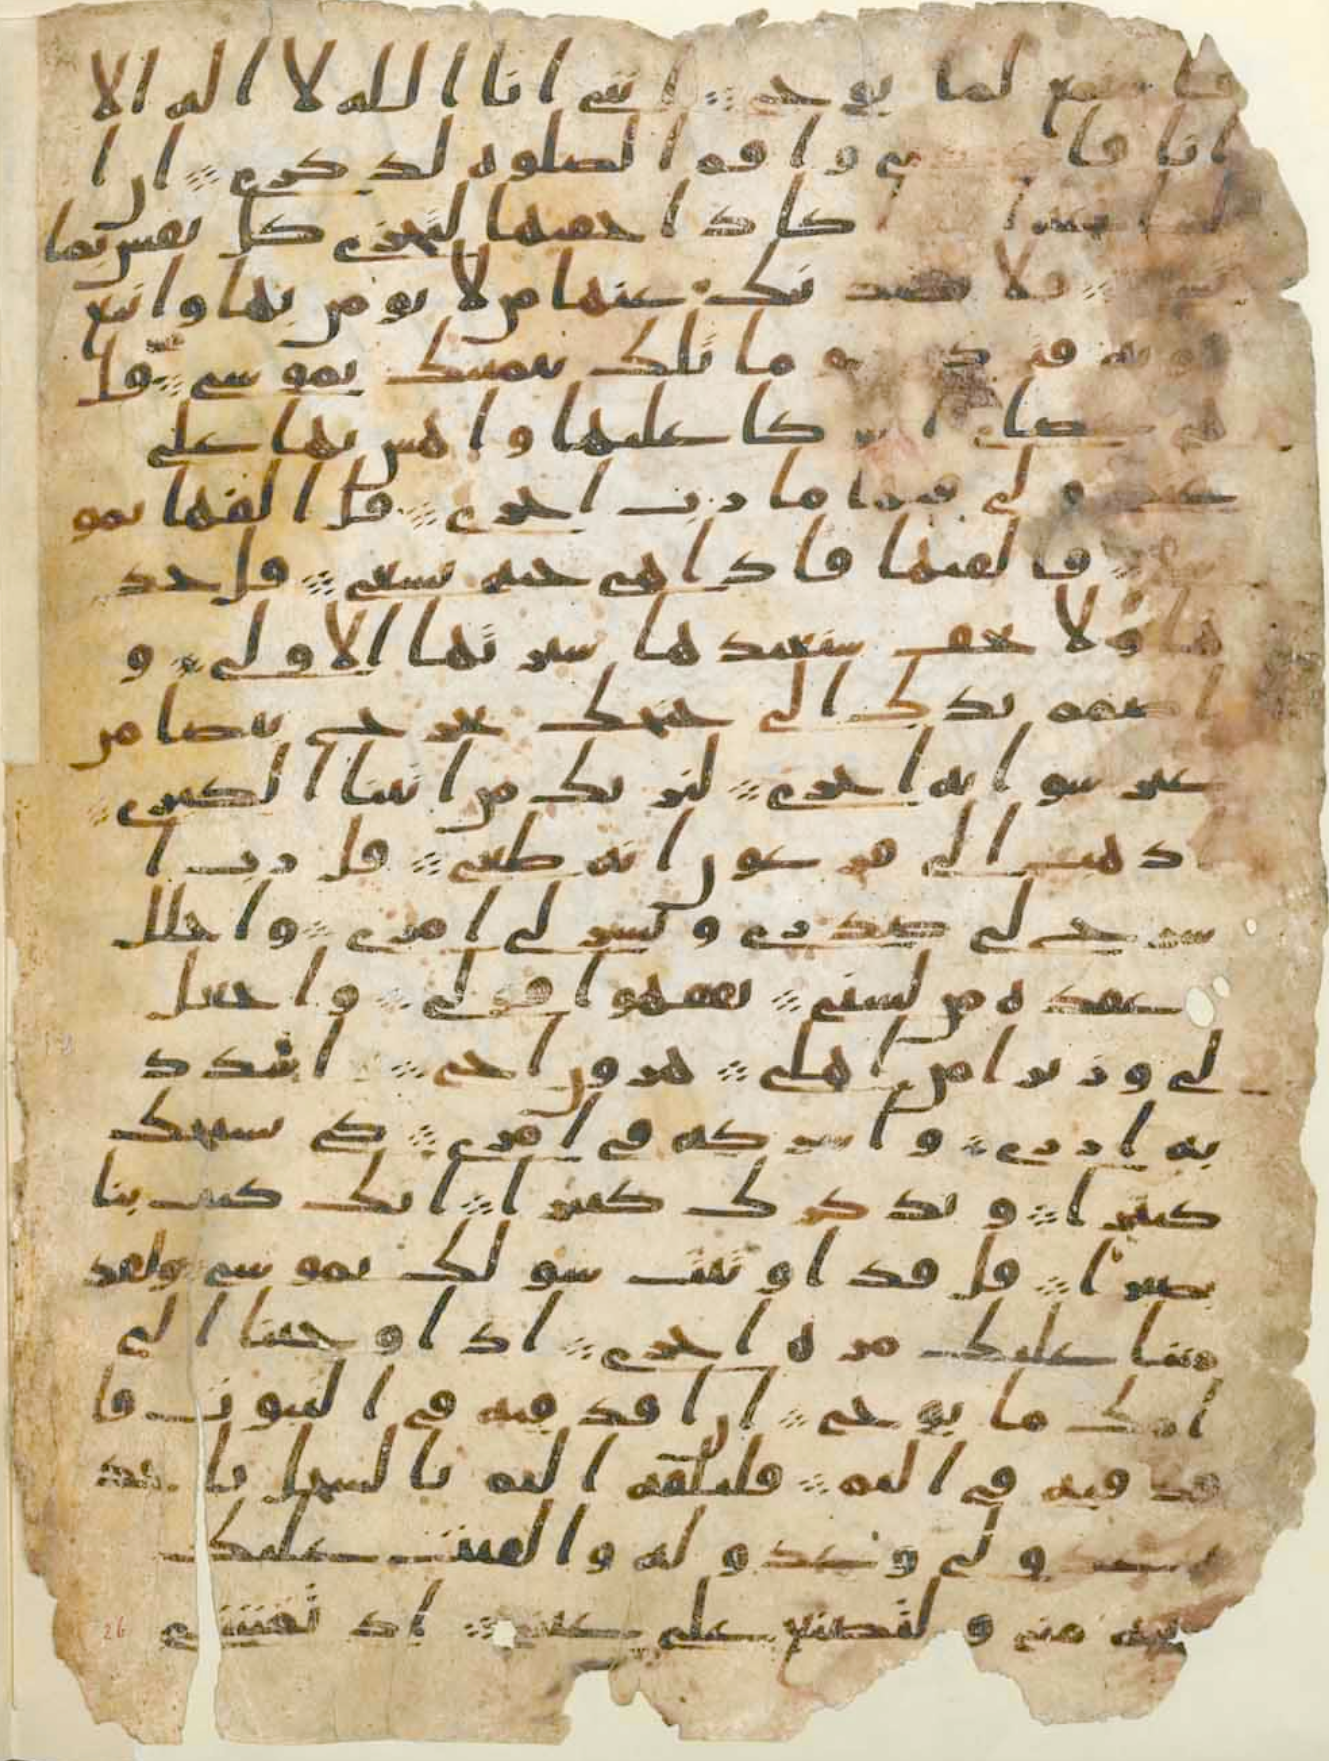 فاستمع لما يوحى انني انا الله لا اله الا
انا واقم الصلوه لذكري ان ا
كاد اخفيها لتجزى كل نفس بما
فلا يصدنك عنها من لا يومن بها واتبع
وما تلك بيمينك يموسى قل
هي عصاي عليها واهش بها على
ولي فيها مارب اخرى قل القها يمو
فالقيها فاذا هي حيه تسعى قل خذ
ها ولا تخف سنعيدها سيرتها الاولى و
اضمم يدك الى جنحك تخرج بيضا من
غير سو ايه اخرى لنريك من ايتنا الكبرى
ذهب الى فرعون انه طغى قل رب ا
شرح لي صدري ويسر لي امري واحلل
عقده من لسني يفقهوا قولي واجعل
لي وزيرا من اهلي هرون اخي اشدد
به ازري واشركه في امري كي نسبحك
كثيرا ونذكرك كثيرا انك كنت بنا
بصيرا قل قد اوتيت سولك يموسى ولقد
مننا عليك مره اخرى اذ اوحينا الى
امك ما يوحى ان اقذفيه في التبوت فا
قذفيه في اليم فليلقه اليم بالسحل ياخذ
لي وعدو له والقيت عليك
مني ولتصنع على عيني اذ تمشي
26